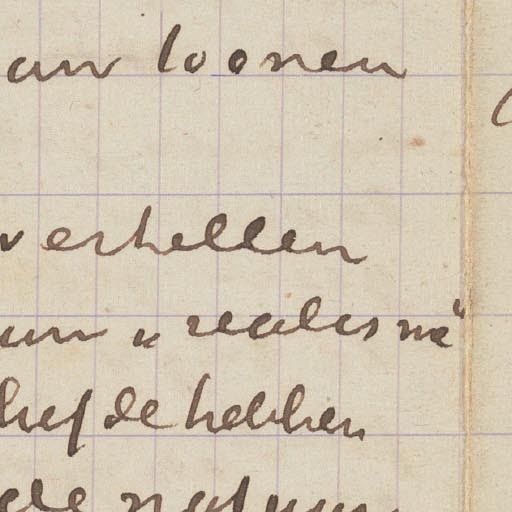 loonen
vertellen
„realisme"
liefde hebben
de natuur